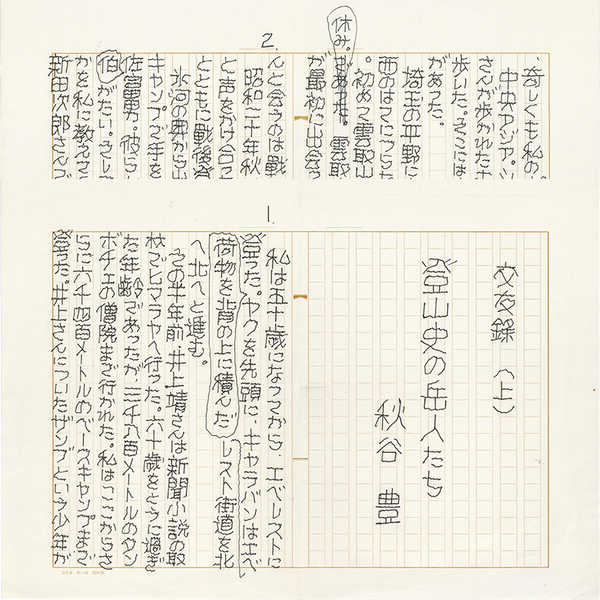 1.
交友録(上)
登山史の岳人たち
秋谷 豊
私は五十歳になってから、エベレストに
登った。ヤクを先頭に、キャラバンはエベ
荷物を背の上に積んだ
レスト街道を北
へ北へと進む。
その半年前、井上靖さんは新聞小説の取
材でヒマラヤへ行った。六十歳をとうに過ぎ
た年齢であったが、三千八百メートルのタン
ボチェの僧院まで行かれた。私はここからさ
らに六千四百メートルのベースキャンプまで
登った。井上さんについたザンブという少年が
2.
、奇しくも私の
中央アジア、シ
さんが歩かれた
歩いた。そこには
があった。
埼玉の平野に
西のはてにつらな
。初めて雲取山
休み。
雲取
が最初に出会っ
んと会うのは戦
昭和二十年秋
と声をかけ合っ
とともに戦後登
氷河の奥から出
キャンプで手を
佐富男。彼ら
伯がたい。そし
かを私に教えて
新田次郎さんが